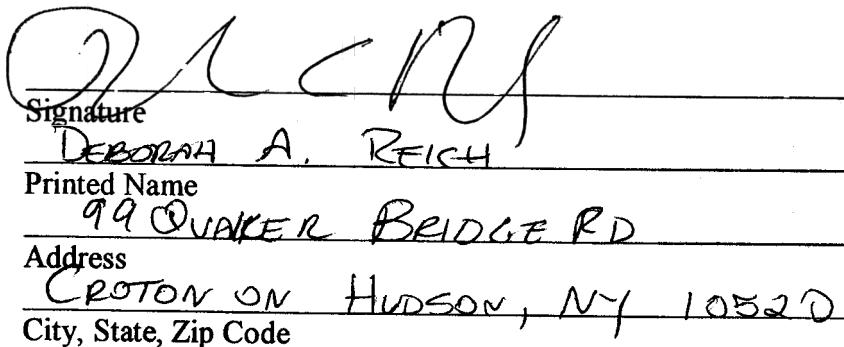 Signature
DEBORAH A. REICH
Printed Name
99 QUAKER BRIDGE RD
Address
CROTON ON HUDSON, NY 10520
City, State, Zip Code